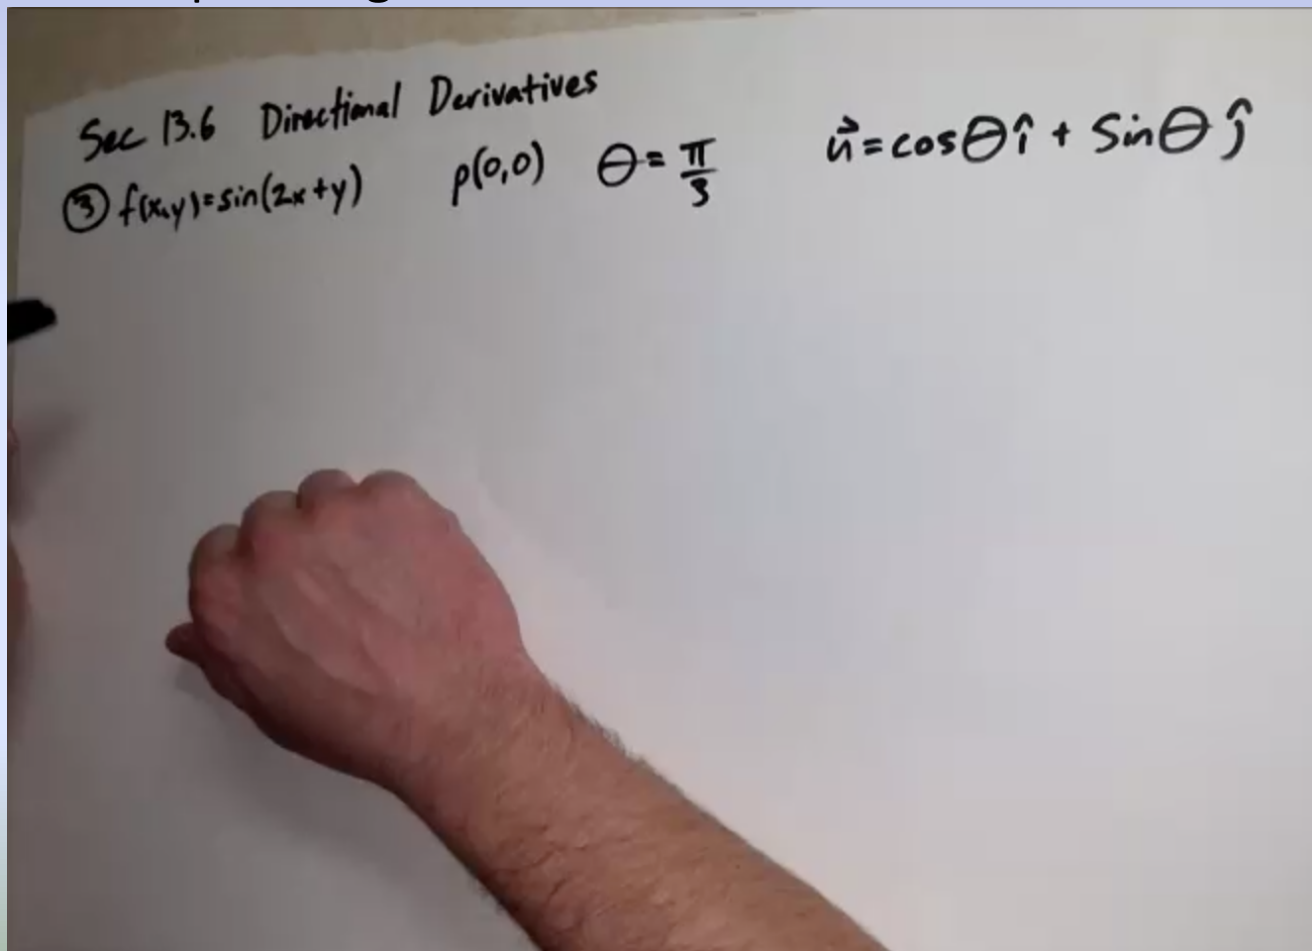 Sec 13.6 Directional Derivatives
③ f(x,y)=sin(2x+y) p(0,0) θ=π/3 u⃗=cosθ î + Sinθ ĵ